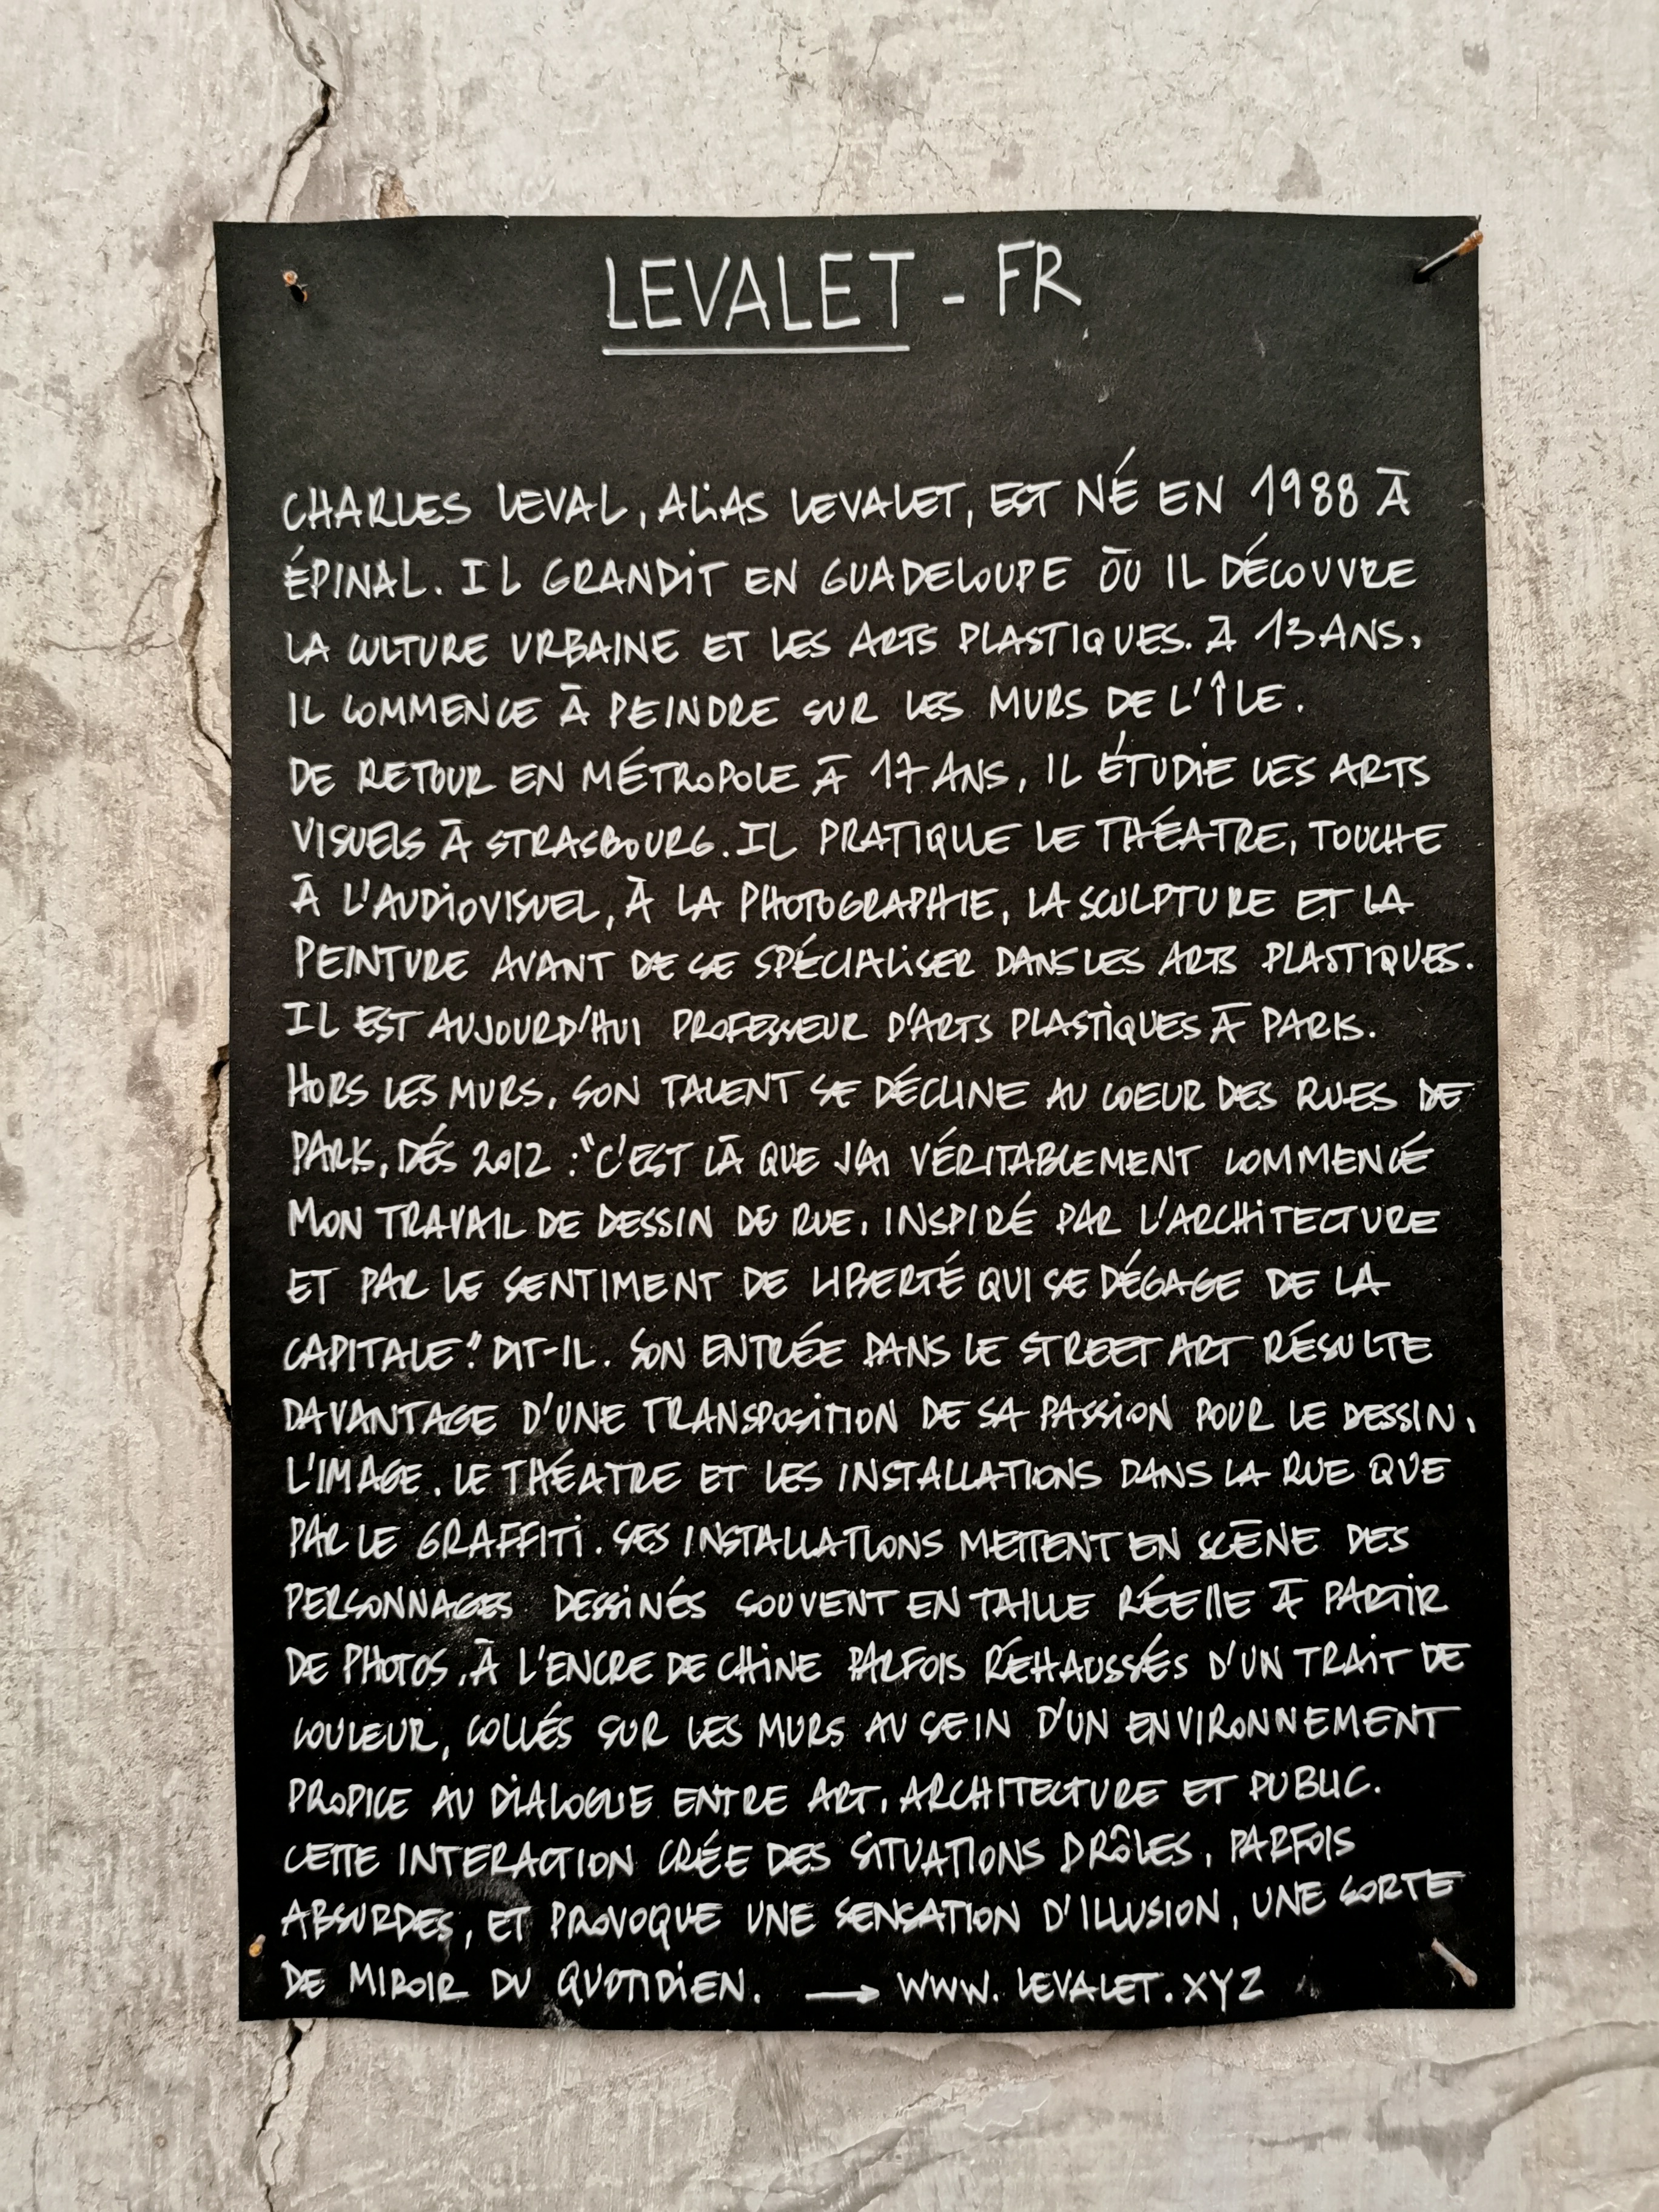 LEVALET - FR
CHARLES LEVAL, ALIAS LEVALET, EST NÉ EN 1988 À
ÉPINAL. IL GRANDIT EN GUADELOUPE OÙ IL DÉCOUVRE
LA CULTURE URBAINE ET LES ARTS PLASTIQUES. À 13 ANS,
IL COMMENCE À PEINDRE SUR LES MURS DE L'ÎLE.
DE RETOUR EN MÉTROPOLE À 17 ANS, IL ÉTUDIE LES ARTS
VISUELS À STRASBOURG. IL PRATIQUE LE THÉATRE, TOUCHE
À L'AUDIOVISUEL, À LA PHOTOGRAPHIE, LA SCULPTURE ET LA
PEINTURE AVANT DE SE SPÉCIALISER DANS LES ARTS PLASTIQUES.
IL EST AUJOURD'HUI PROFESSEUR D'ARTS PLASTIQUES À PARIS.
HORS LES MURS, SON TALENT SE DÉCLINE AU COEUR DES RUES DE
PARIS, DÉS 2012 : "C'EST LÀ QUE J'AI VÉRITABLEMENT COMMENCÉ
MON TRAVAIL DE DESSIN DE RUE, INSPIRÉ PAR L'ARCHITECTURE
ET PAR LE SENTIMENT DE LIBERTÉ QUI SE DÉGAGE DE LA
CAPITALE". DIT-IL. SON ENTRÉE DANS LE STREET ART RÉSULTE
DAVANTAGE D'UNE TRANSPOSITION DE SA PASSION POUR LE DESSIN,
L'IMAGE, LE THÉATRE ET LES INSTALLATIONS DANS LA RUE QUE
PAR LE GRAFFITI. SES INSTALLATIONS METTENT EN SCÈNE DES
PERSONNAGES DESSINÉS SOUVENT EN TAILLE RÉELLE À PARTIR
DE PHOTOS, À L'ENCRE DE CHINE PARFOIS RÉHAUSSÉS D'UN TRAIT DE
COULEUR, COLLÉS SUR LES MURS AU SEIN D'UN ENVIRONNEMENT
PROPICE AU DIALOGUE ENTRE ART, ARCHITECTURE ET PUBLIC.
CETTE INTERACTION CRÉE DES SITUATIONS DRÔLES, PARFOIS
ABSURDES, ET PROVOQUE UNE SENSATION D'ILLUSION, UNE SORTE
DE MIROIR DU QUOTIDIEN. → WWW.LEVALET.XYZ